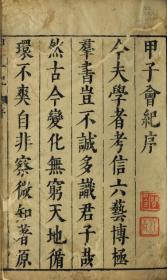 甲子會紀序
今夫學者考信六藝博極
羣書豈不誠多識君子哉
然古今變化無窮天地循
環不爽自非察微知著原